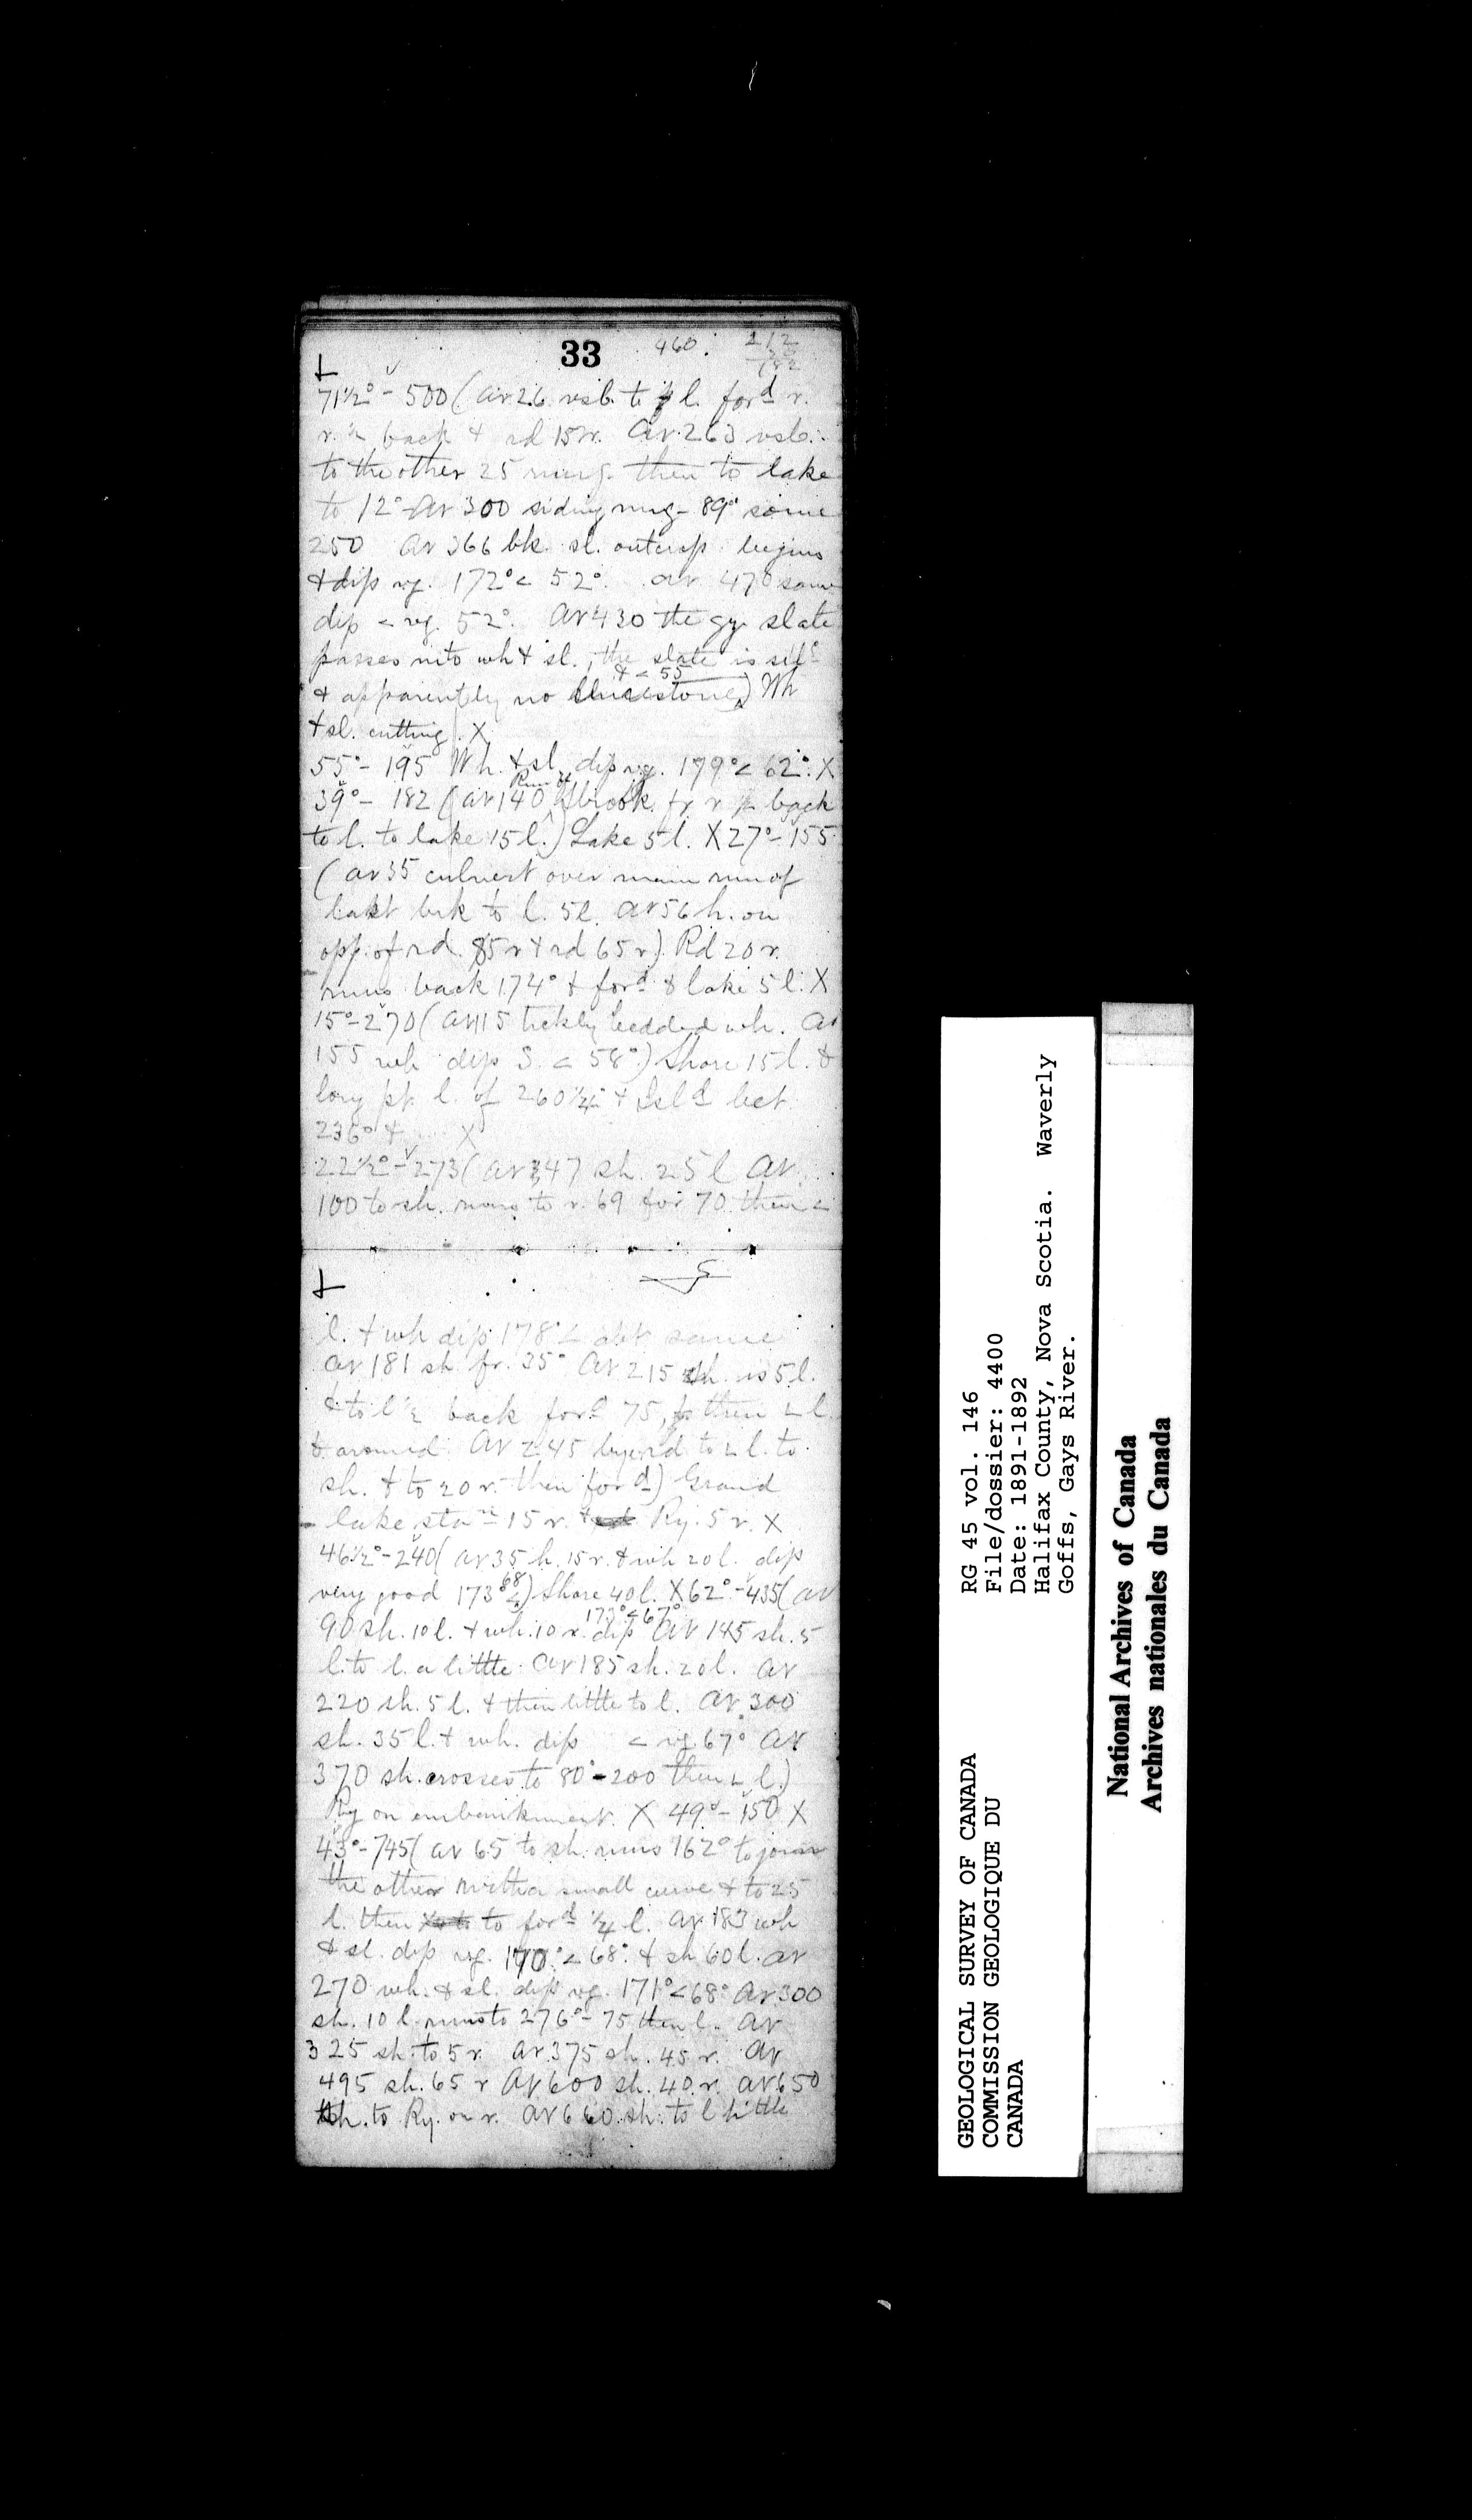 33 460. 212
71½° - 500 (at 26 rsb. to l. ford r.
r. ½ back & rd 15 r. at 263 rsb.
to the other 25 rung. then to lake
to 12° at 300 siding rung - 89° some
250 at 366 bk. sl. outcrop begins
& dip rg. 172° < 52°. at 470 same
dip < rg. 52°. at 430 the gy slate
passes into wh & sl., the slate is
& < 55
& apparently no Wh
& sl. cutting. X
55° - 195 Wh. & sl. dip rg. 179° < 62°. X
Run of
39° - 182 (at 140 brook fr. r back
to l. to lake 15 l.) Lake 5 l. X 27° - 155
(at 35 culvert over main run of
last brk to l. 5 l. at 56 h. on
opp. of rd. 85 r & rd 65 r.) Rd 20 r.
runs back 174° & ford & lake 5 l. X
15° - 270 (at 115 tickly bedded wh. at
155 wh dip S. < 58°.) Shore 15 l. &
long pt. l. of 260 & Isld bet.
236° & X
22½° - 273 (at 47 sh. 25 l at
100 to sh. runs to r. 69 for 70 then <
l. & wh dip 178° < abt same
at 181 sh. fr. 35° at 215 sh. is 5 l.
& to l ½ back ford 75, then l.
& around at 245 rd to l. to
sh. & to 20 r. then ford) Grand
lake stan 15 r. Ry. 5 r. X
46½° - 240 (at 35 h. 15 r. & wh 20 l. dip
very good 173° < 68) Shore 40 l. X 62° - 435 (at
173° < 67°
90 sh. 10 l. & wh. 10 r. dip at 145 sh. 5
l. to l. a little. at 185 sh. 20 l. at
220 sh. 5 l. & then little to l. at 300
sh. 35 l. & wh. dip < rg. 67° at
370 sh. crosses to 80° - 200 then l.)
Ry on embankment. X 49° - 150 X
43° - 745 (at 65 to sh. runs 162° to join
the other with a small curve & to 25
l. then to ford ¼ l. at 183 wh
& sl. dip rg. 170° < 68°. & sh 60 l. at
270 wh. & sl. dip rg. 171° < 68° at 300
sh. 10 l. runs to 276° - 75 then l. at
325 sh. to 5 r. at 375 sh. 45 r. at
495 sh. 65 r at 600 sh. 40 r. at 650
sh. to Ry. on r. at 660 sh. to l little
GEOLOGICAL SURVEY OF CANADA
COMMISSION GEOLOGIQUE DU
CANADA
RG 45 vol. 146
File/dossier: 4400
Date: 1891-1892
Halifax County, Nova Scotia. Waverly
Goffs, Gays River.
National Archives of Canada
Archives nationales du Canada